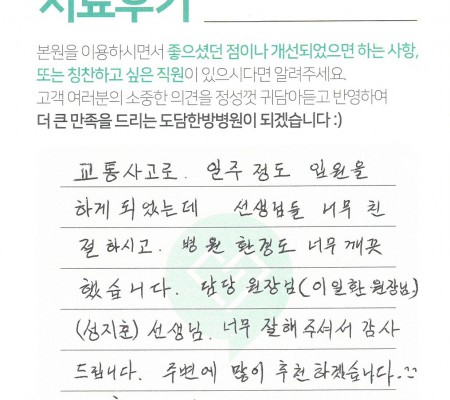 치료후기
본원을 이용하시면서 좋으셨던 점이나 개선되었으면 하는 사항,
또는 칭찬하고 싶은 직원이 있으시다면 알려주세요.
고객 여러분의 소중한 의견을 정성껏 귀담아듣고 반영하여
더 큰 만족을 드리는 도담한방병원이 되겠습니다 :)
교통사고로. 일주 정도 입원을
하게 되었는데 선생님들 너무 친
절 하시고. 병원 환경도 너무 깨끗
했습니다. 담당 원장님(이일환 원장님)
(성지훈) 선생님. 너무 잘해 주셔서 감사
드립니다. 주변에 많이 추천 하겠습니다.^^